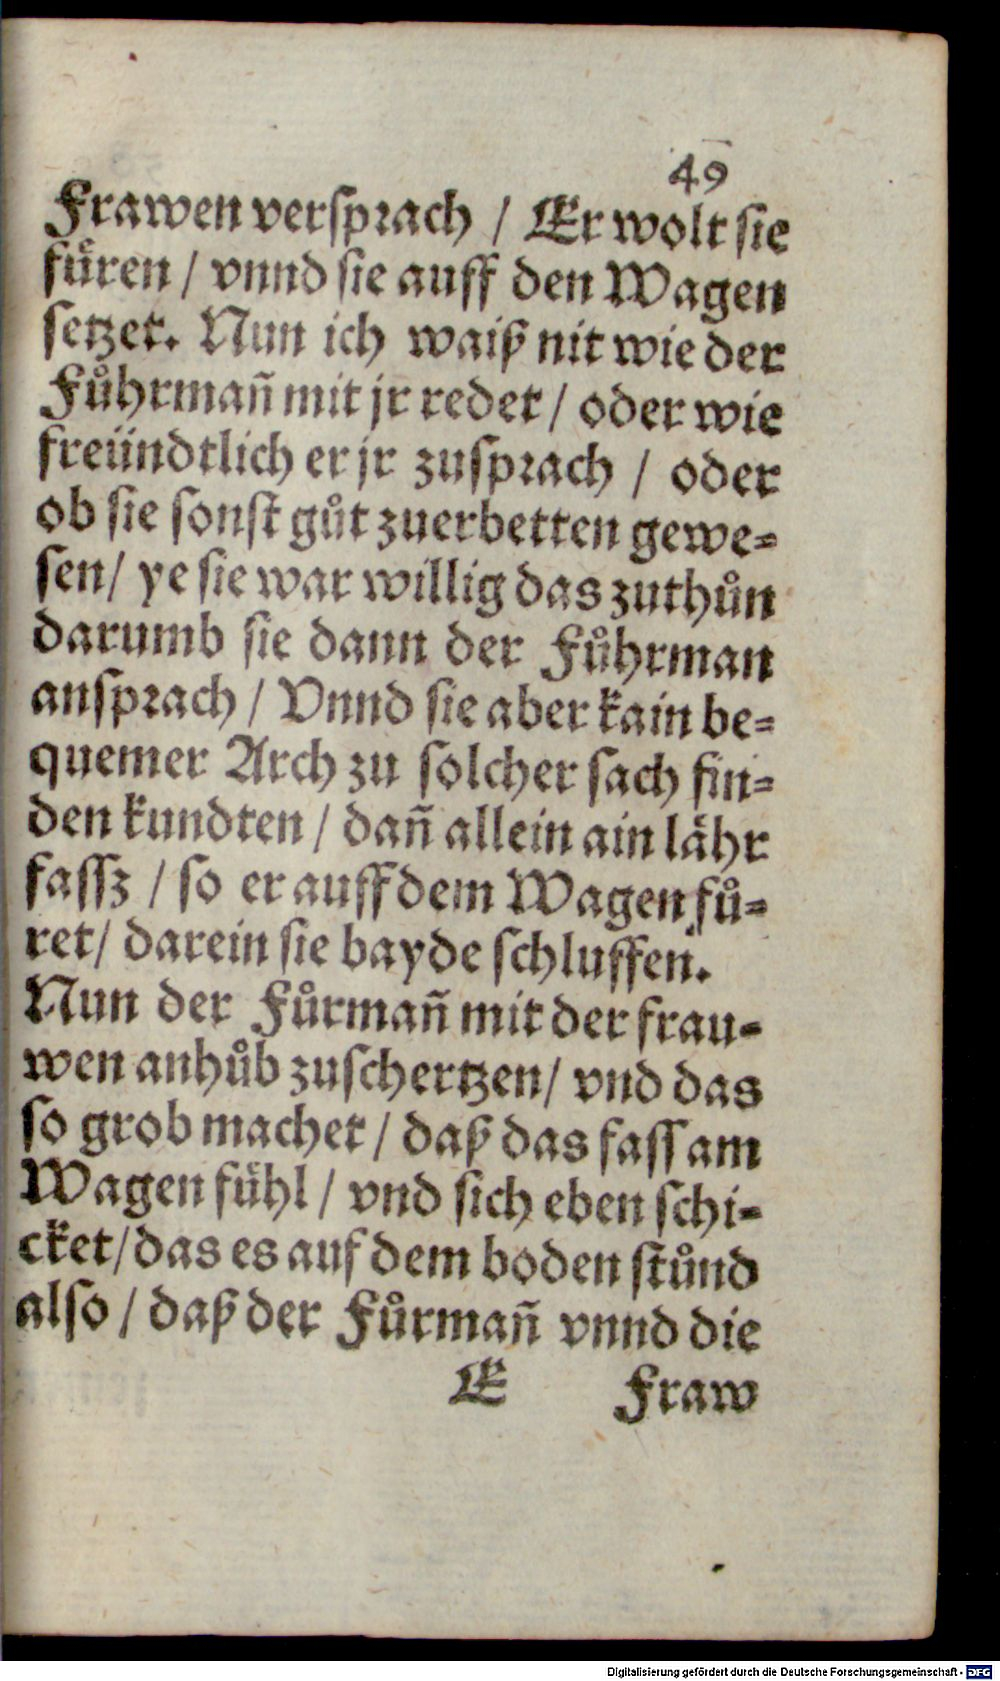 49
Frawen versprach / Er wolt sie
fuͤren / vnnd sie auff den Wagen
setzet. Nun ich waiß nit wie der
Fuͤhrmañ mit jr redet / oder wie
freündtlich er jr zusprach / oder
ob sie sonst guͦt zuerbetten gewe-
sen / ye sie war willig das zuthuͦn
darumb sie dann der Fuͦhrman
ansprach / Vnnd sie aber kain be-
quemer Arch zu solcher sach fin-
den kundten / dañ allein ain laͤhr
fassz / so er auff dem Wagen fuͦ-
ret / darein sie bayde schluffen.
Nun der Fuͦrmañ mit der frau-
wen anhuͦb zuschertzen / vnd das
so grob machet / daß das fass am
Wagen fuͤhl / vnd sich eben schi-
cket / das es auf dem boden stuͦnd
also / daß der Fuͦrmañ vnnd die
E Fraw
Digitalisierung gefördert durch die Deutsche Forschungsgemeinschaft - DFG